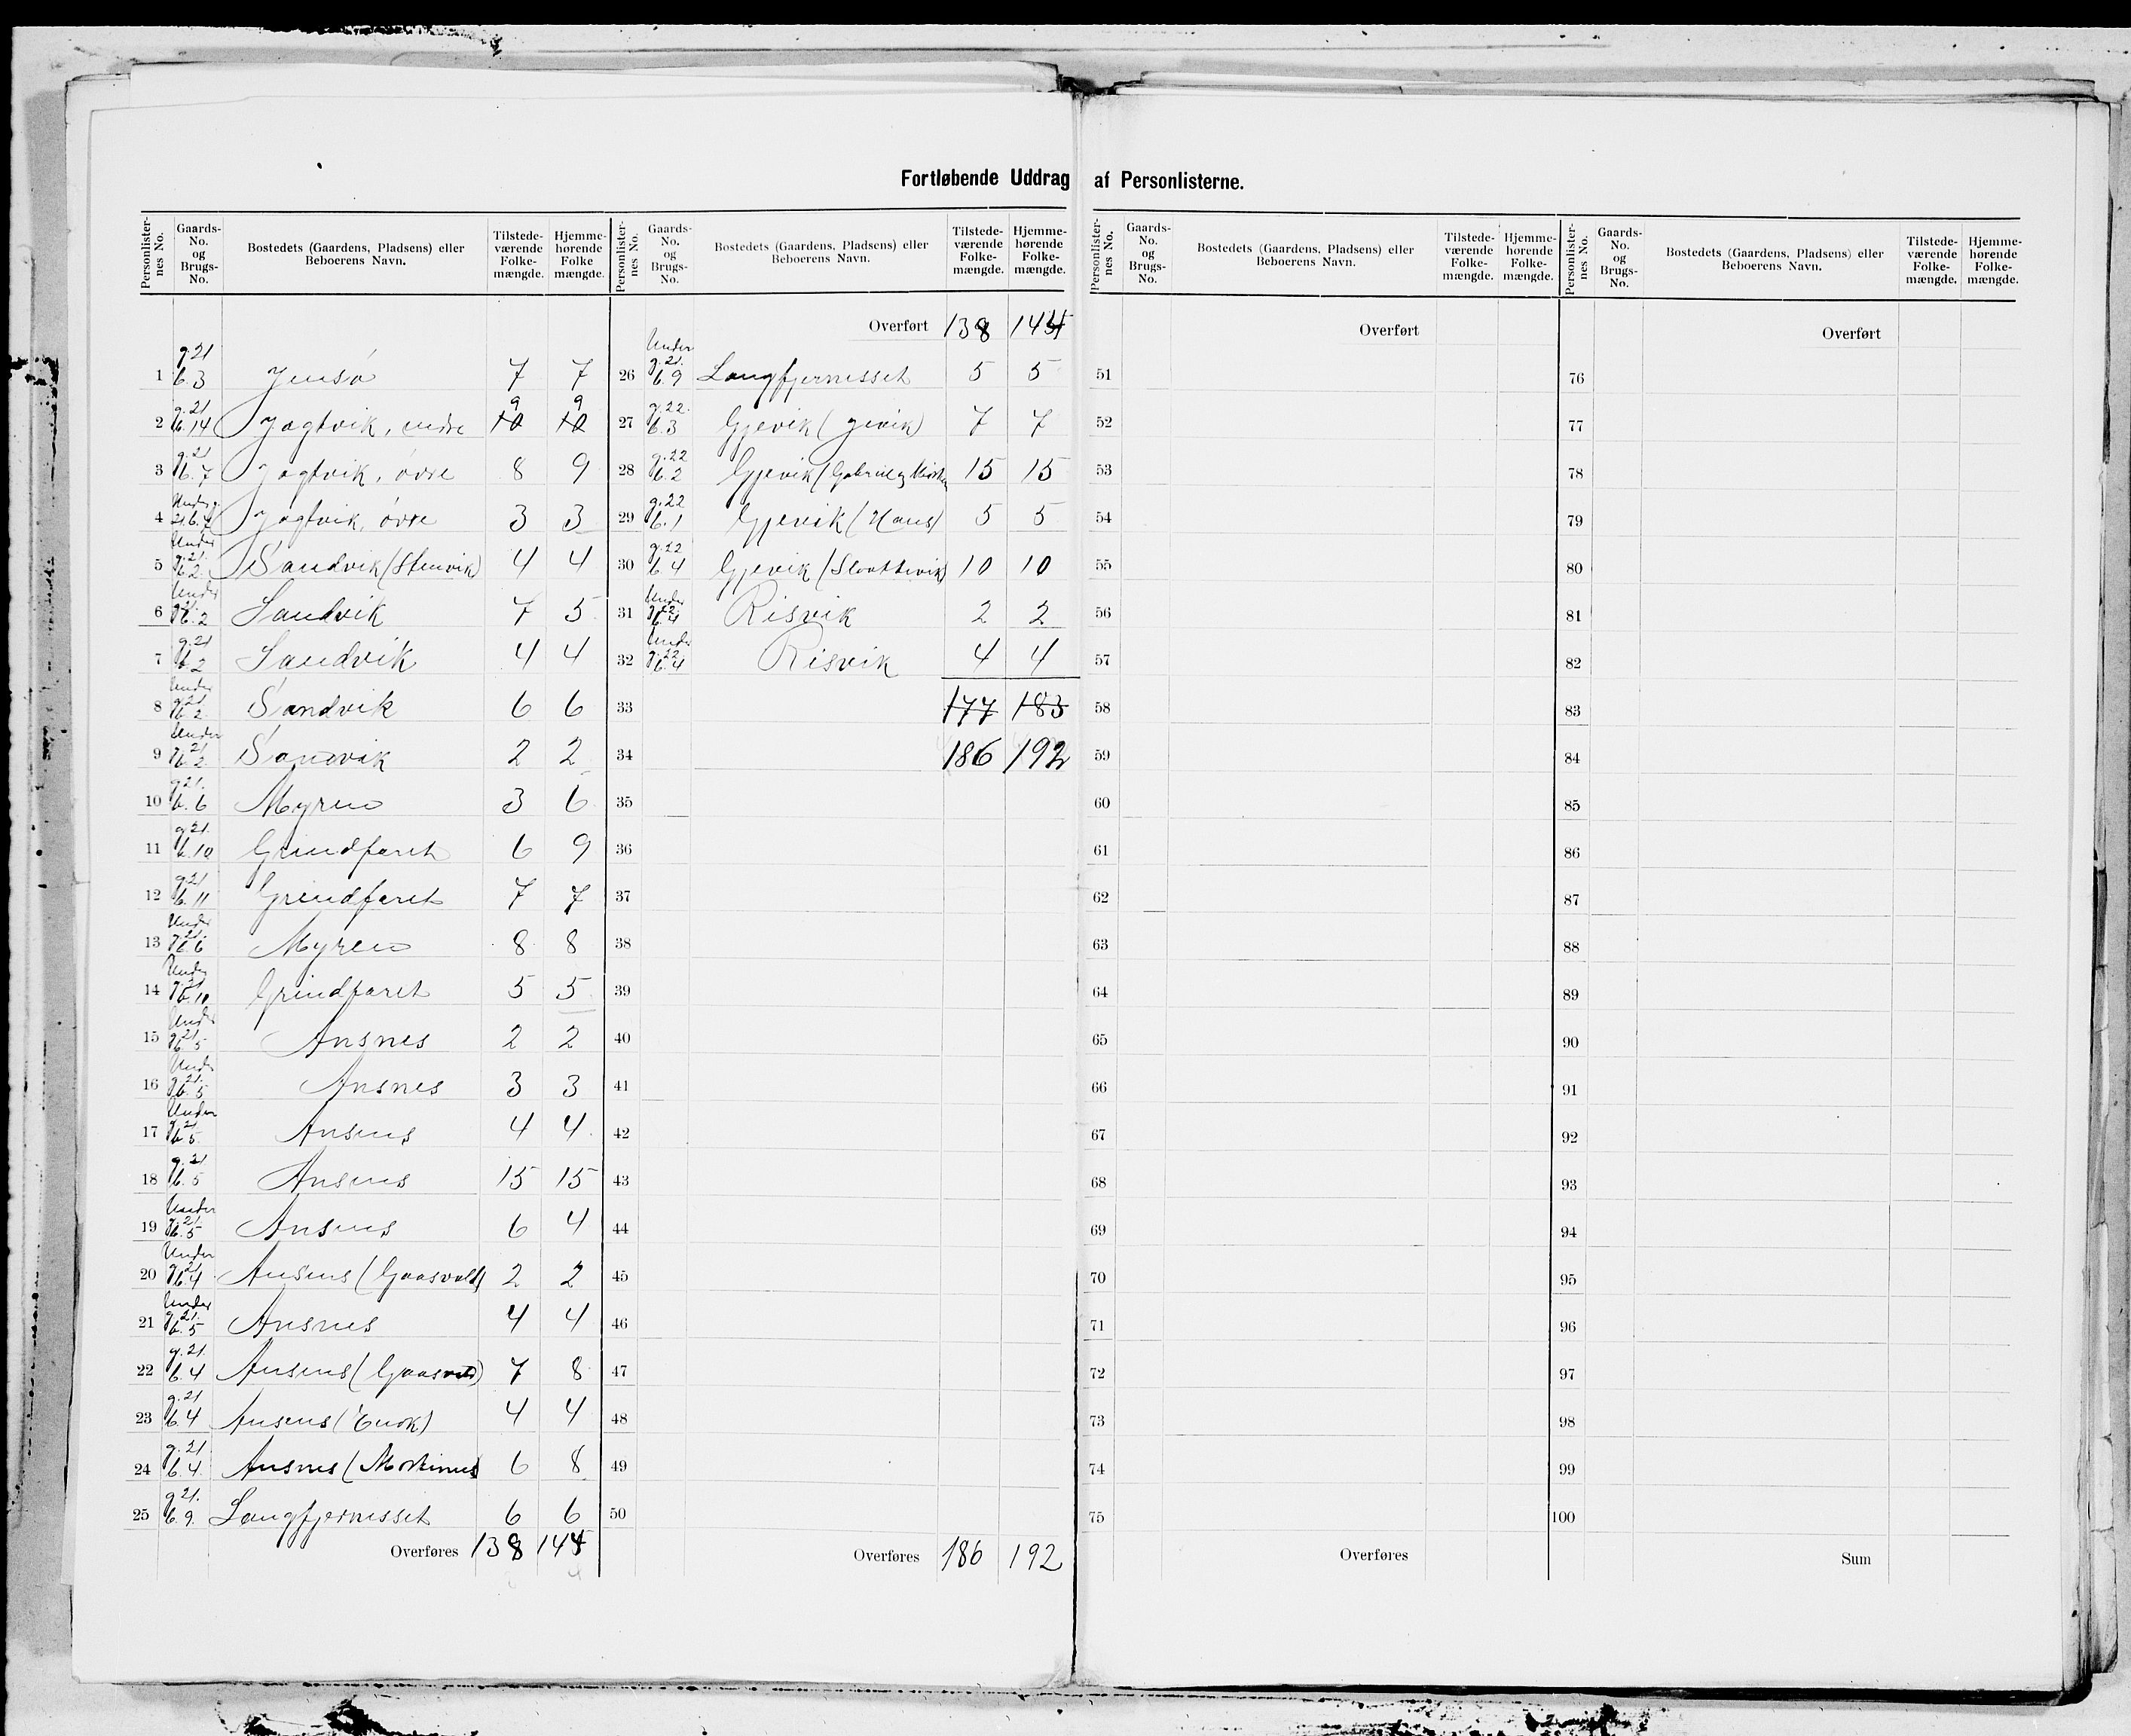 Fortløbende Uddrag af Personlisterne.
Personlister-nes No. Gaards-No. og Brugs-No. Bostedets (Gaardens, Pladsens) eller Beboerens Navn. Tilstede-værende Folke-mængde. Hjemme-hørende Folke mængde.
1 g.21 b.3 Jensø 7 7
2 g.21 b.14 Jagtvik, nedre 10 9 10 9
3 g.21 b.7 Jagtvik, øvre 8 9
4 Under g. 21 b.7 Jagtvik, øvre 3 3
5 Under g.21. b.2. Sandvik (Stenvik) 4 4
6 Under g.21. b.2 Sandvik 7 5
7 g.21 b.2 Sandvik 4 4
8 Under g.21 b.2 Sandvik 6 6
9 Under g.21 b.2. Sandvik 2 2
10 g.21. b.6 Myren 3 6
11 g.21. b.10 Grindfaret 6 9
12 g.21 b.11 Grindfaret 7 7
13 Under g.21. b.6 Myren 8 8
14 Under g.21 b.10 Grindfaret 5 5
15 Under g.21. b.5 Ansnes 2 2
16 Under g.21. b.5 Ansnes 3 3
17 Under g.21 b.5. Ansnes 4 4
18 g.21 b.5 Ansnes 15 15
19 Under g.21. b.5 Ansnes 6 4
20 Under g.21. b.4 Ansnes (Gaasvold) 2 2
21 Under g.21. b.5 Ansnes 4 4
22 g.21. b.4 Ansnes (Gaasvold) 7 8
23 g.21 b.4 Ansnes (Enok) 4 4
24 g.21 b.4. Ansnes (Martinus) 6 8
25 g.21. b.9. Langfjernesset 6 6
Overføres 138 144
Personlister-nes No. Gaards-No. og Brugs-No. Bostedets (Gaardens, Pladsens) eller Beboerens Navn. Tilstede-værende Folke-mængde. Hjemme-hørende Folke-mængde.
Overført 138 144
26 Under g.21. b.9 Langfjernesset 5 5
27 g.22. b.3 Gjevik (Jevik) 7 7
28 g.22 b.2 Gjevik (Gabriel og 15 15
29 g.22 b.1 Gjevik (Hans) 5 5
30 g.22 b.4 Gjevik (Slottevik) 10 10
31 Under g.22. b.4 Risvik 2 2
32 Under g.22 b.4 Risvik 4 4
33 177 183
34 186 192
35
36
37
38
39
40
41
42
43
44
45
46
47
48
49
50
Overføres 186 192
Personlister-nes No. Gaards-No. og Brugs-No. Bostedets (Gaardens, Pladsens) eller Beboerens Navn. Tilstede-værende Folke-mængde. Hjemme-hørende Folke-mængde.
Overført
51
52
53
54
55
56
57
58
59
60
61
62
63
64
65
66
67
68
69
70
71
72
73
74
75
Overføres
Personlister-nes No. Gaards-No. og Brugs-No. Bostedets (Gaardens, Pladsens) eller Beboerens Navn. Tilstede-værende Folke-mængde. Hjemme-hørende Folke-mængde.
Overført
76
77
78
79
80
81
82
83
84
85
86
87
88
89
90
91
92
93
94
95
96
97
98
99
100
Sum